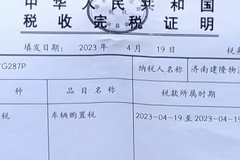 中华人民共和国
税收完税证明
填发日期： 2023年 4月 19日 税务
G287P 纳税人名称 济南建隆物
种 品目名称 税款所属时期
税 车辆购置税 2023-04-19至2023-04-